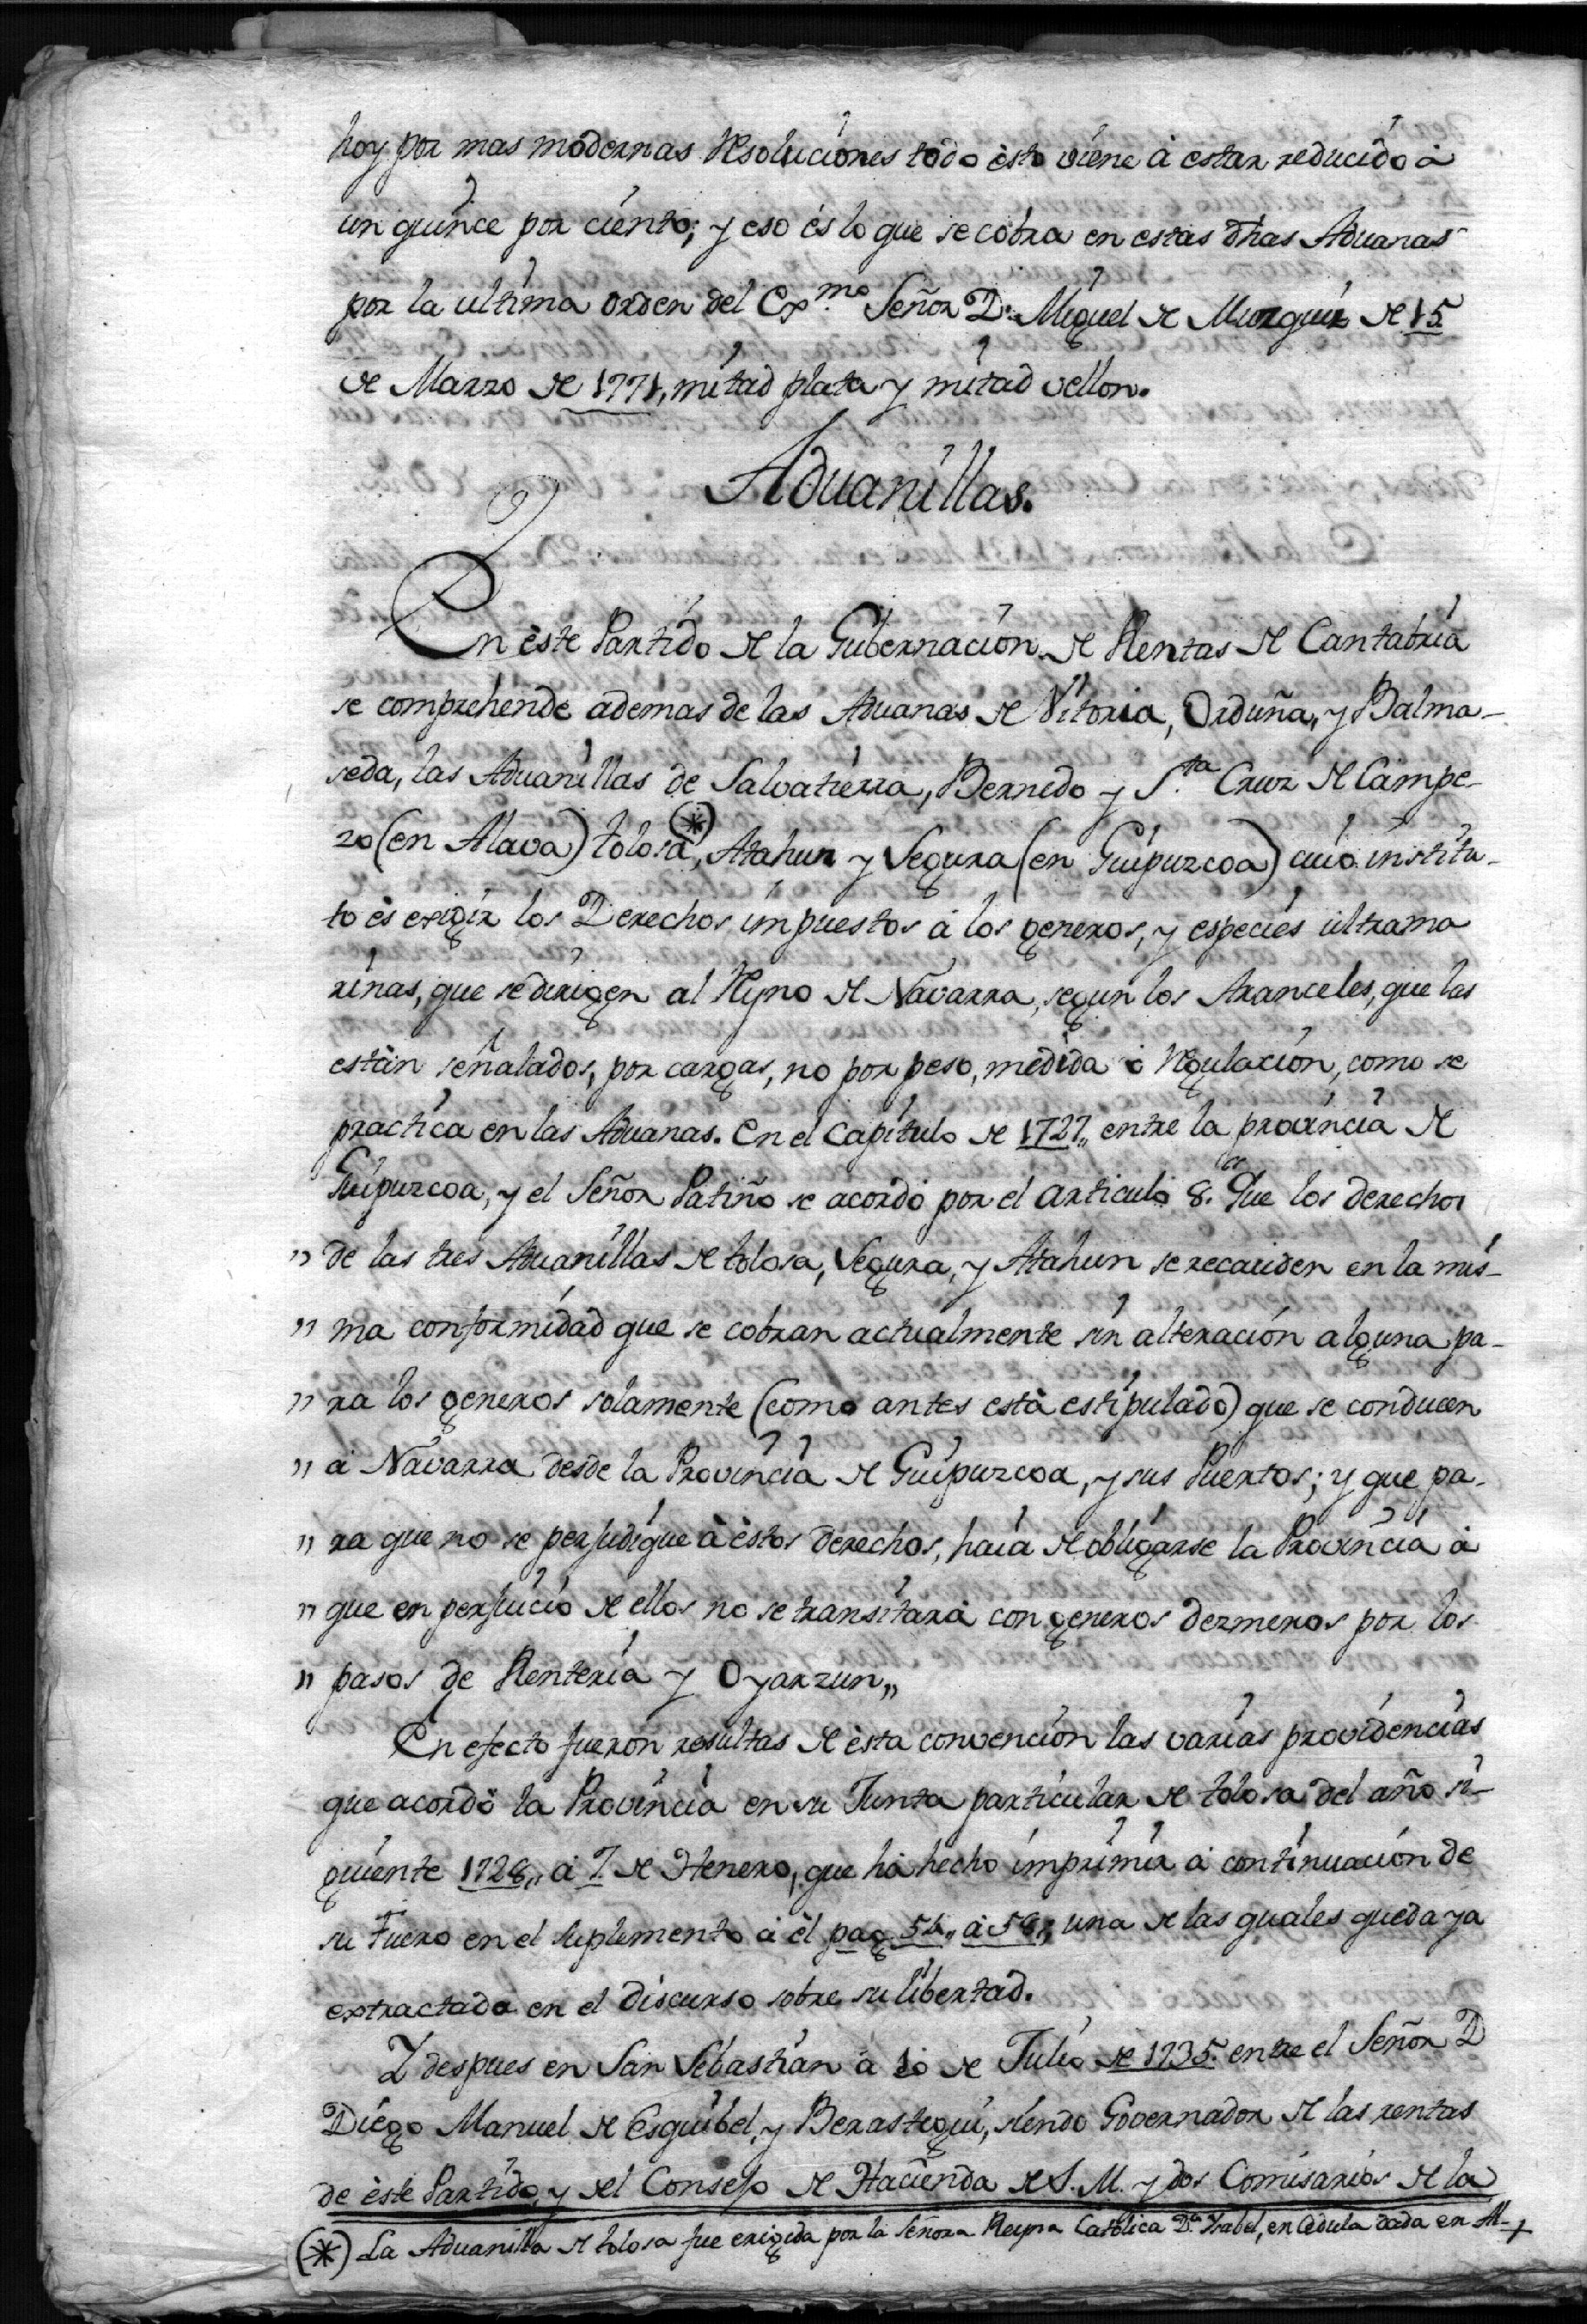 hoy por mas modernas Resoluciones todo ésto viene á estar reducido á
un quince por ciento; y eso és lo que se cobra en estas dhas Aduanas
por la ultima orden del Exmo Señor D. Miguel de Muzquiz de 15
de Marzo de 1771, mitad plata y mitad vellon.
Aduanillas.
En éste Partido de la Gubernacion de Rentas de Cantabria
se comprehende ademas de las Aduanas de Vitoria, Orduña, y Balma-
seda, las Aduanillas de Salvatierra, Bernedo y S.ta Cruz de Campe-
zo (en Alava) tolosa(*), Atahun y Segura (en Guipuzcoa) cuio institu-
to és exigir los Derechos impuestos á los generos, y especies ultrama
rinas, que se dirigen al Reyno de Navarra, segun los Aranceles, que las
están señalados, por cargas, no por peso, medida ó Regulacion, como se
practica en las Aduanas. En el Capitulo de 1727,, entre la provincia de
Guipuzcoa, y el Señor Patiño se acordó por el articulo 8. Que los derechos
,, de las tres Aduanillas de tolosa, Segura, y Atahun se recauden en la mis-
,, ma conformidad que se cobran actualmente sin alteracion alguna pa-
,, ra los generos solamente (como antes está estipulado) que se conducen
,, á Navarra desde la Provincia de Guipuzcoa, y sus Puertos; y que pa-
,, ra que no se perjudique á éstos derechos, haia de obligarse la Provincia á
,, que en perjuicio de ellos no se transitará con generos dezmeros por los
,, pasos de Renteria y Oyarzun,,
En efecto fueron resultas de ésta convencion las varias providencias
que acordó la Provincia en su Junta particular de tolosa del año si-
guiente 1728,, á 7 de Henero, que há hecho imprimir á continuacion de
su Fuero en el Suplemento á él pag 54,, á 58,, una de las quales queda ya
extractada en el discurso sobre su libertad.
Y despues en San Sebastian á 10 de Julio de 1735 entre el Señor D
Diego Manuel de Esquibel, y Berastegui, siendo Governador de las rentas
de éste Partido, y del Consejo de Hacienda de S. M. y dos Comisarios de la
(*) La Aduanilla de tolosa fue erigida por la Señora Reyna Catolica D.a Ysabel, en Cedula dada en Al-